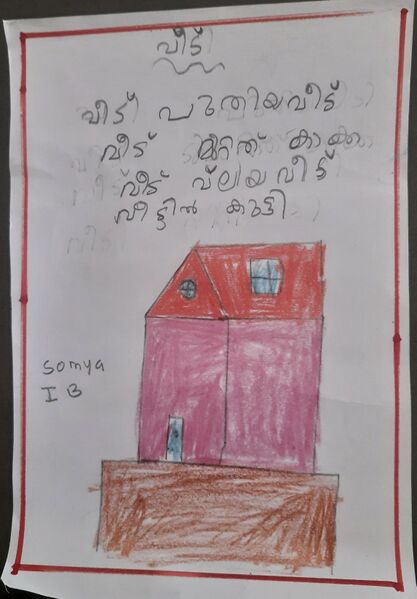 വീട്
വീട് പുതിയവീട്
വീട് മുറ്റത്ത് കാക്ക
വീട് വലിയ വീട്
വീട്ടിൽ കുട്ടി
Somya
I B